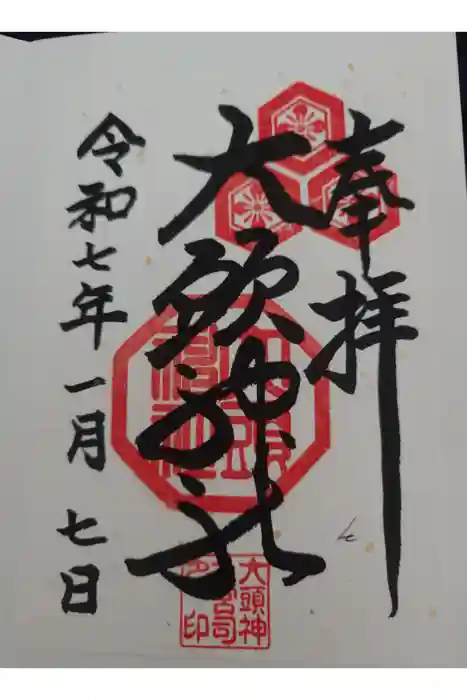 奉拝
大頭神社
令和七年一月七日
大頭
神社
大頭神
社宮司
之印